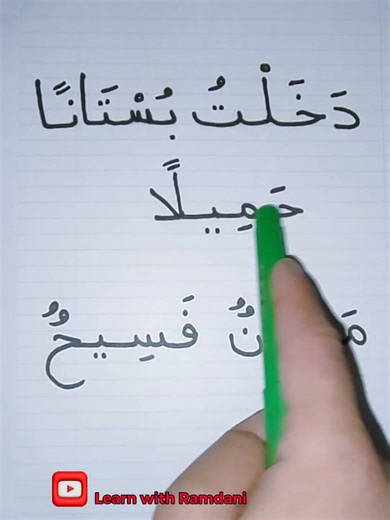 دَخَلْتُ بُسْتَانًا
جَمِيلًا
فَسِيحٌ
Learn with Ramdani